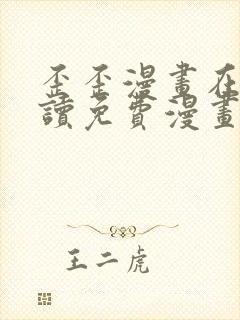 歪歪漫畫在
讀免費漫畫
王二虎